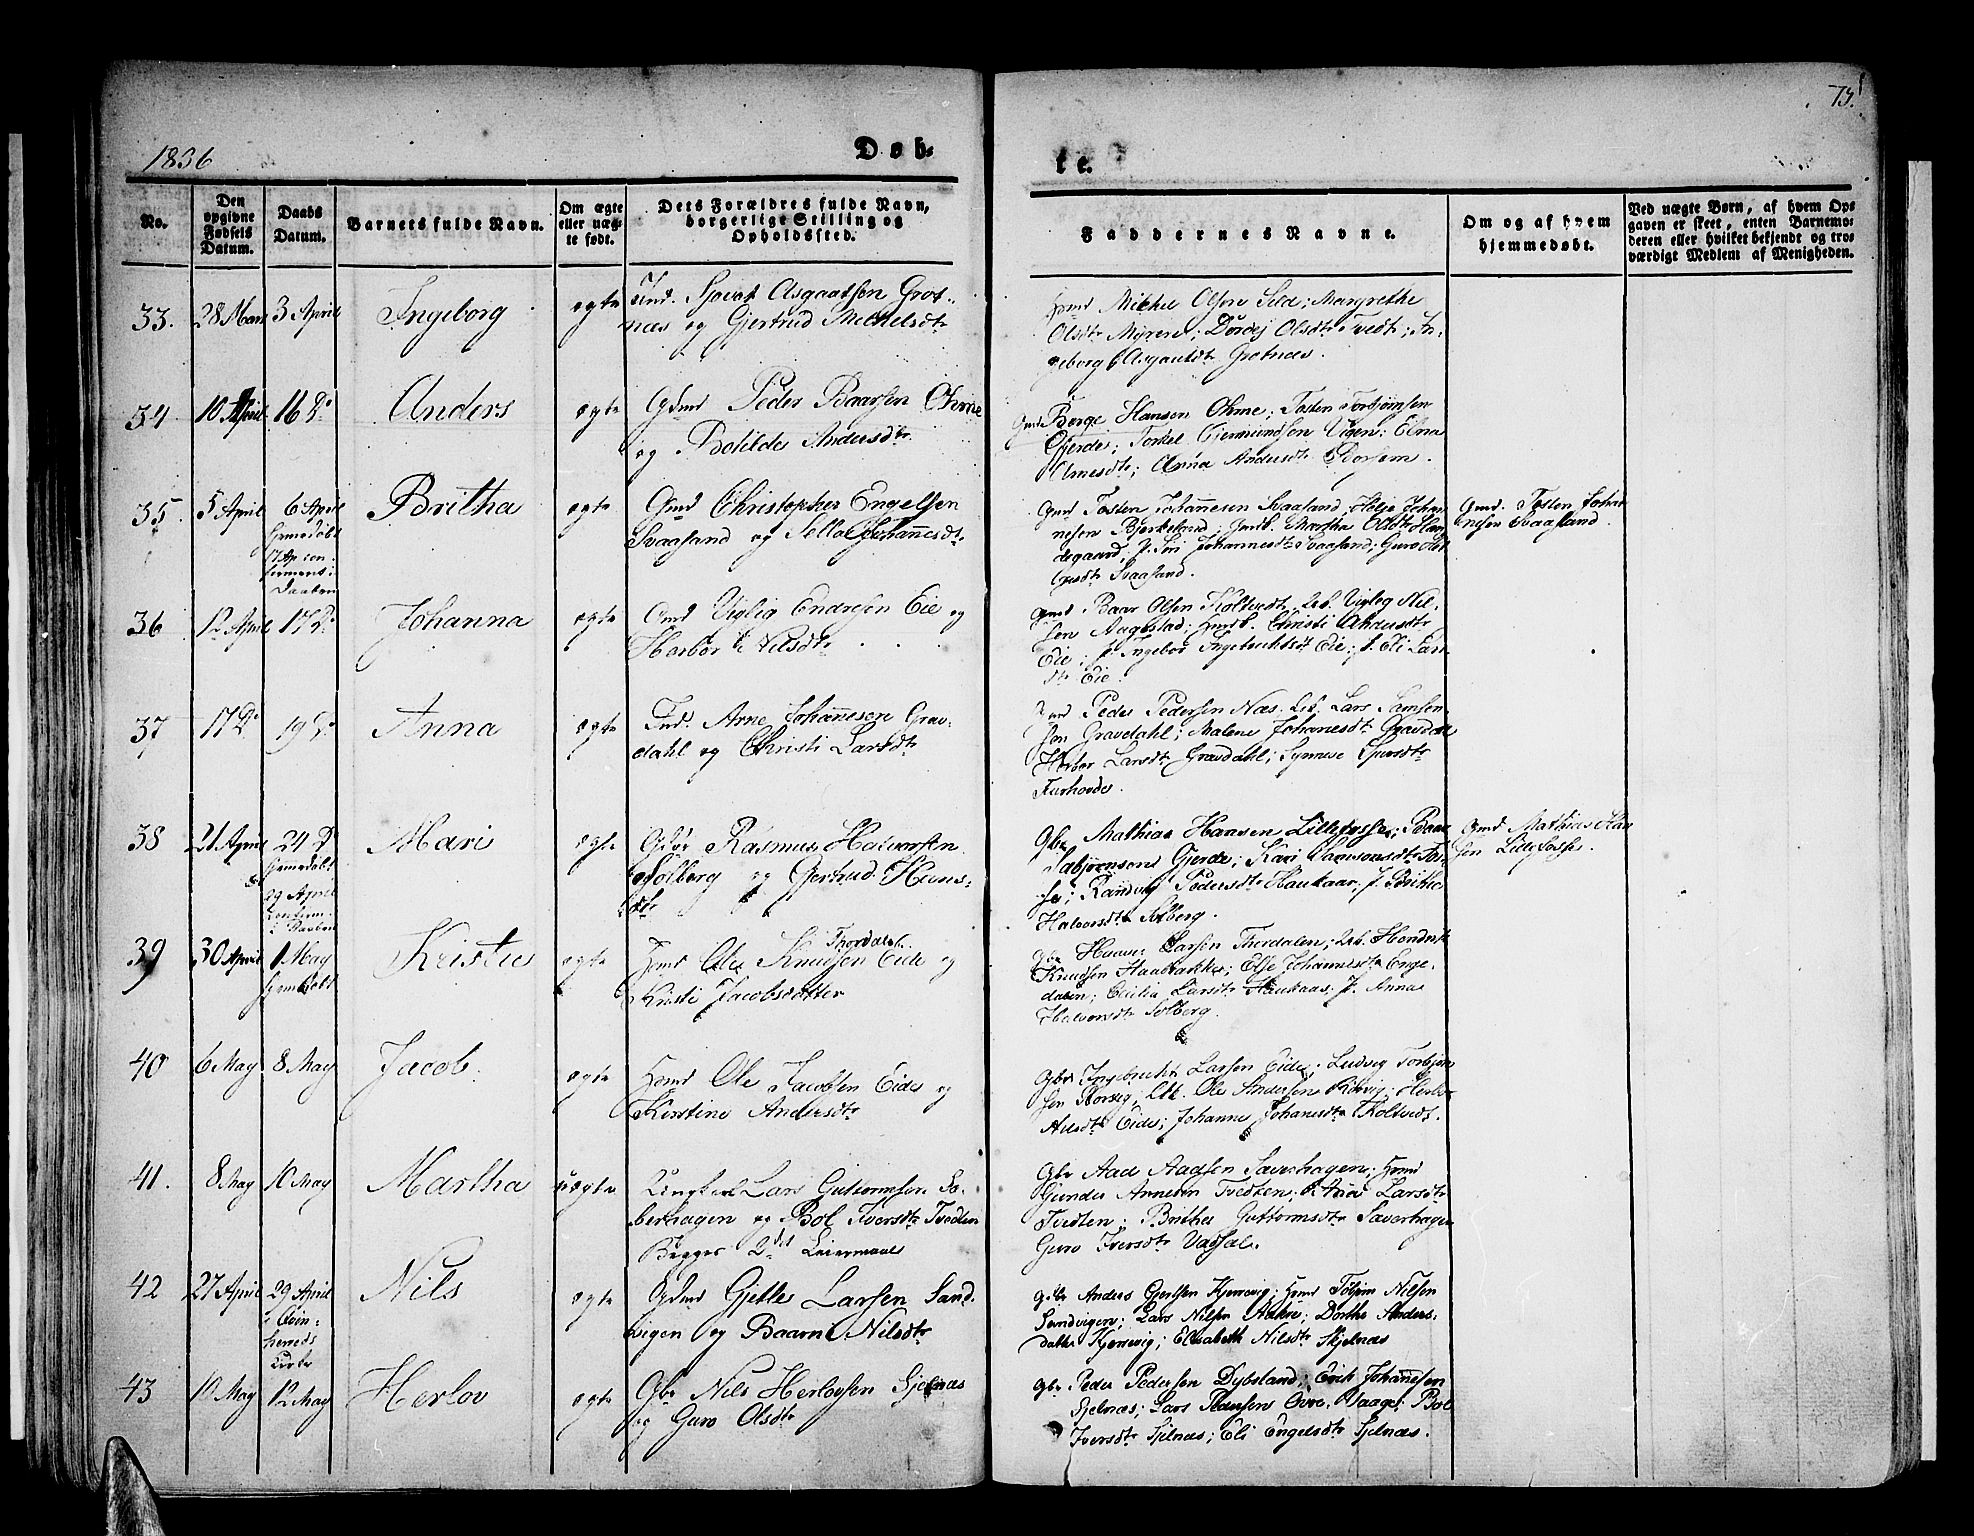 1836
Døb-
te.
75.
No.
Den
opgivne
Fødsels
Datum.
Daabs
Datum.
Barnets fulde Navn.
Om ægte
eller uæg-
te født.
Dets Forældres fulde Navn,
borgerlige Stilling og
Opholdssted.
Faddernes Navne.
Om og af hvem
hjemmedøbt.
Ved uægte Børn, af hvem Op-
gaven er skeet, enten Barnemo-
deren eller hvilket bekjendt og tro-
værdigt Medlem af Menigheden.
33. 28 Mars 3 April Ingeborg ægte
Asgautsen Grot-
næs og Gjertrud Michelsdtr
Hmd Michel Olsen Margrethe
Olsdtr Myrene; Dordej Olsdtr Tvedt; In-
geborg Asgautsdtr Grotnæs.
34 10 April 16 Do Anders ægte
Gdmd Peder Baarsen Ohme
og Bothilde Andersdtr
Gmd Børge Hansen Ohme; Tosten Torbjørnsen
Gjerde; Torkel Gjermundsen Vigen; Elna
Omesdtr; Anna Andersdtr
35 5 April 6 April
Hjemedøbt
17 Ap con-
firmert i
Daaben
Britha ægte
Gmd Christopher Engelsen
Svaasand og Sella Johannesdtr
Gmd Tosten Johannesen Svaasand, Helje Johan-
nesen Bjerkeland; Martha Olsdtr Han-
degaard; p. Siri Johannesdtr Svaasand; Guro Hel-
gesdtr Svaasand.
Gmd. Tosten Johan
nesen Svaasand.
36 12 April 17 Do Johanna ægte
Gmd Viglig Endresen Eie og
Herbor Nilsdtr
Gmd Baar Olsen Koltvedt, Leb. Vigleg Nil-
sen Aagestad; Christi
Eie; p. Ingebor Ingebrichtsdtr Eie; p. Eli Lars
dtr Eie.
37 17 Do 19 Do Anna ægte
Ind. Arne Johannesen Grav-
dahl og Christi Larsdtr
Peder Pedersen Næs. Leb. Lars Samson-
sen Gravdahl; Malene Johannesdtr Gravdal
Herbor Larsdtr Gravdahl; Synneve Sjursdtr
Furhovde.
38 21 April 24 Do
Hjemedøbt
29 April
Daaben
Mari ægte
Gdbr Rasmus Halvorsen
Solberg og Gertrud Hans-
dtr
Gbr Mathias Hansen Lillefosse; Baar
Gjerde; Kari Samsonsdtr Fos-
se; Randvig Pedersdtr Haukaas, p. Britha
Halvorsdtr Solberg.
Gmd Mathias Han
sen Lillefosse.
39 30 April 1 May
Hjemdøbt
Kristie ægte
Thordalen
Hmd Ole Knudsen Eide og
Kristi Jacobsdatter
Gbr Larsen Thordalen; Leb. Hendrik
Knudsen Elsje Johannesdtr Enge-
dalen; Cicilia Larsdtr Haukaas; p. Anna
Halvorsdtr Solberg.
40 6 May 8 May Jacob. ægte
Hmd Ole Jacobsen Eide og
Kirstine Andersdtr
Gbr Ingebricht Larsen Eide; Ludvig Torbjørn
sen Leb. Ole Andersen Herbor
Nilsdtr Eide; Johanne Johannesdtr Koltvedt.
41. 8 May 10 May Martha uægte
Ungkarl Lars Guttormsen Sa-
verhagen og Bol Iversdtr Tvedten
Begges 2det Leiermaal
Gbr Aad Aadsen Saverhagen; Hmd
Gunder Arnesen Tvedten; Larsdtr
Tvedten; Brithe Guttormsdtr Saverhagen
Guro Iversdtr
42 27 April 29 April
i Qvin-
herreds
Kirke
Nils ægte
Gdmd Gjetle Larsen Sand-
vigen og Baarni Nilsdtr
Gbr Anders Gjertsen Kjerrevig; Hmd Nilsen
Sandvigen; Lars Nilsen Aakre; Dorthe Anders-
datter Kjerrevig; Elisabeth Nilsdtr Skjelnæs
43 10 May 12 May Herlov ægte
Gbr Nils Herlovsen Sjelnæs
og Guro Olsdtr
Gbr Peder Pedersen Dybsland; Erik Johannesen
Sjelnæs; Lars Pedersen Øvre Vaage; Bol
Iversdtr Sjelnæs; Eli Engelsdtr Sjelnæs.